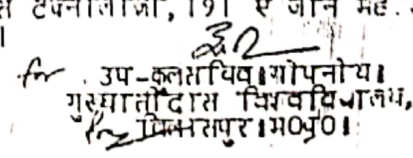 टेक्नालाजी, 191 ए जोन महे.
।
for उप-कुलसचिव।गोपनीय।
गुरूघासीदास विश्वविद्यालय,
बिलासपुर।म0प्र0।